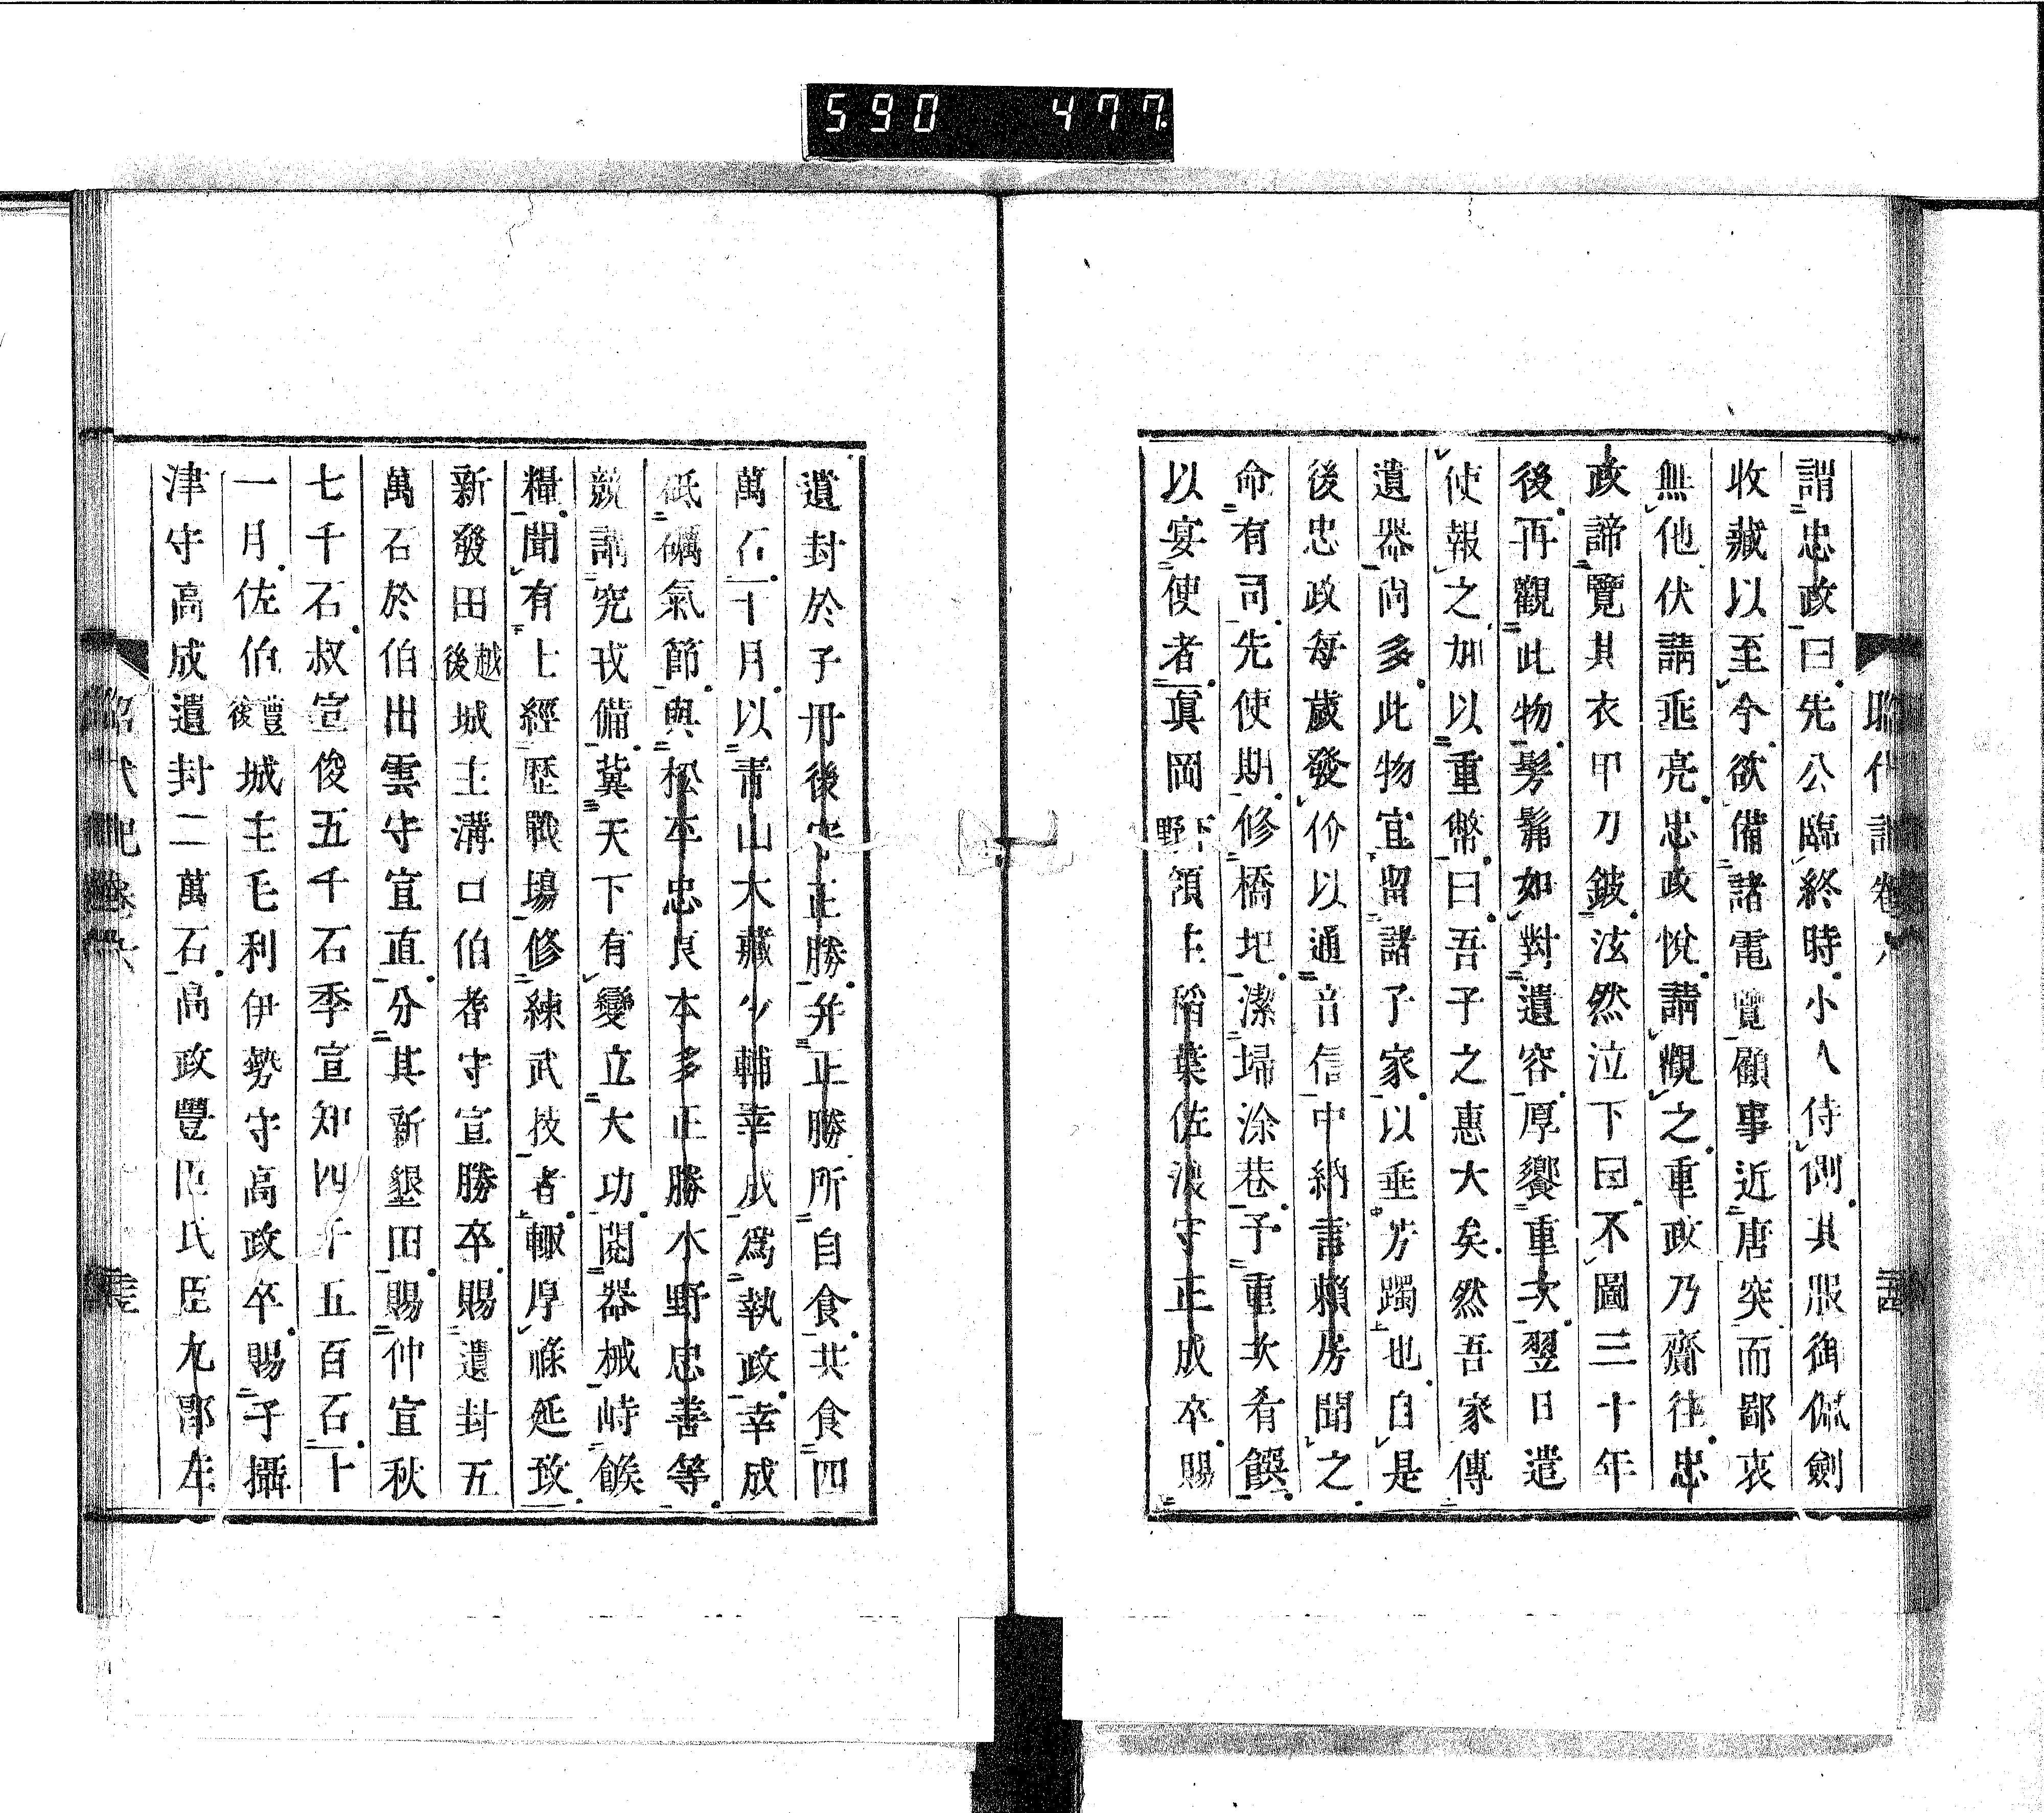 590 477.
謂忠政曰先公臨終時小人侍側其服御佩劍
收藏以至今欲備諸電覽顧事近唐突而鄙衷
無他伏請垂亮忠政悅請觀之重政乃齎往忠
政諦覽其衣甲刀鈹泫然泣下曰不圖三十年
後再觀此物髣髴如對遺容厚饗重次翌日遣
使報之加以重幣曰吾子之惠大矣然吾家傳
遺器尚多此物宜留諸子家以垂芳躅也自是
後忠政每歲發价以通音信中納言賴房聞之
命有司先使期修橋圯潔埽涂巷予重次肴饌
以宴使者眞岡下野領主稻葉佐渡守正成卒賜
遺封於子丹後守正勝并正勝所自食共食四
萬石十月以靑山大藏少輔幸成爲執政幸成
砥礪氣節與松平忠良本多正勝水野忠善等
競講究戎備冀天下有變立大功閱器械峙餱
糧聞有士經歷戰場修練武技者輙厚祿延致
新發田越後城主溝口伯耆守宣勝卒賜遺封五
萬石於伯出雲守宣直分其新墾田賜仲宣秋
七千石叔宣俊五千石季宣知四千五百石十
一月佐伯豐後城主毛利伊勢守高政卒賜子攝
津守高成遺封二萬石高政豐臣氏臣九郎左
昭代記卷六